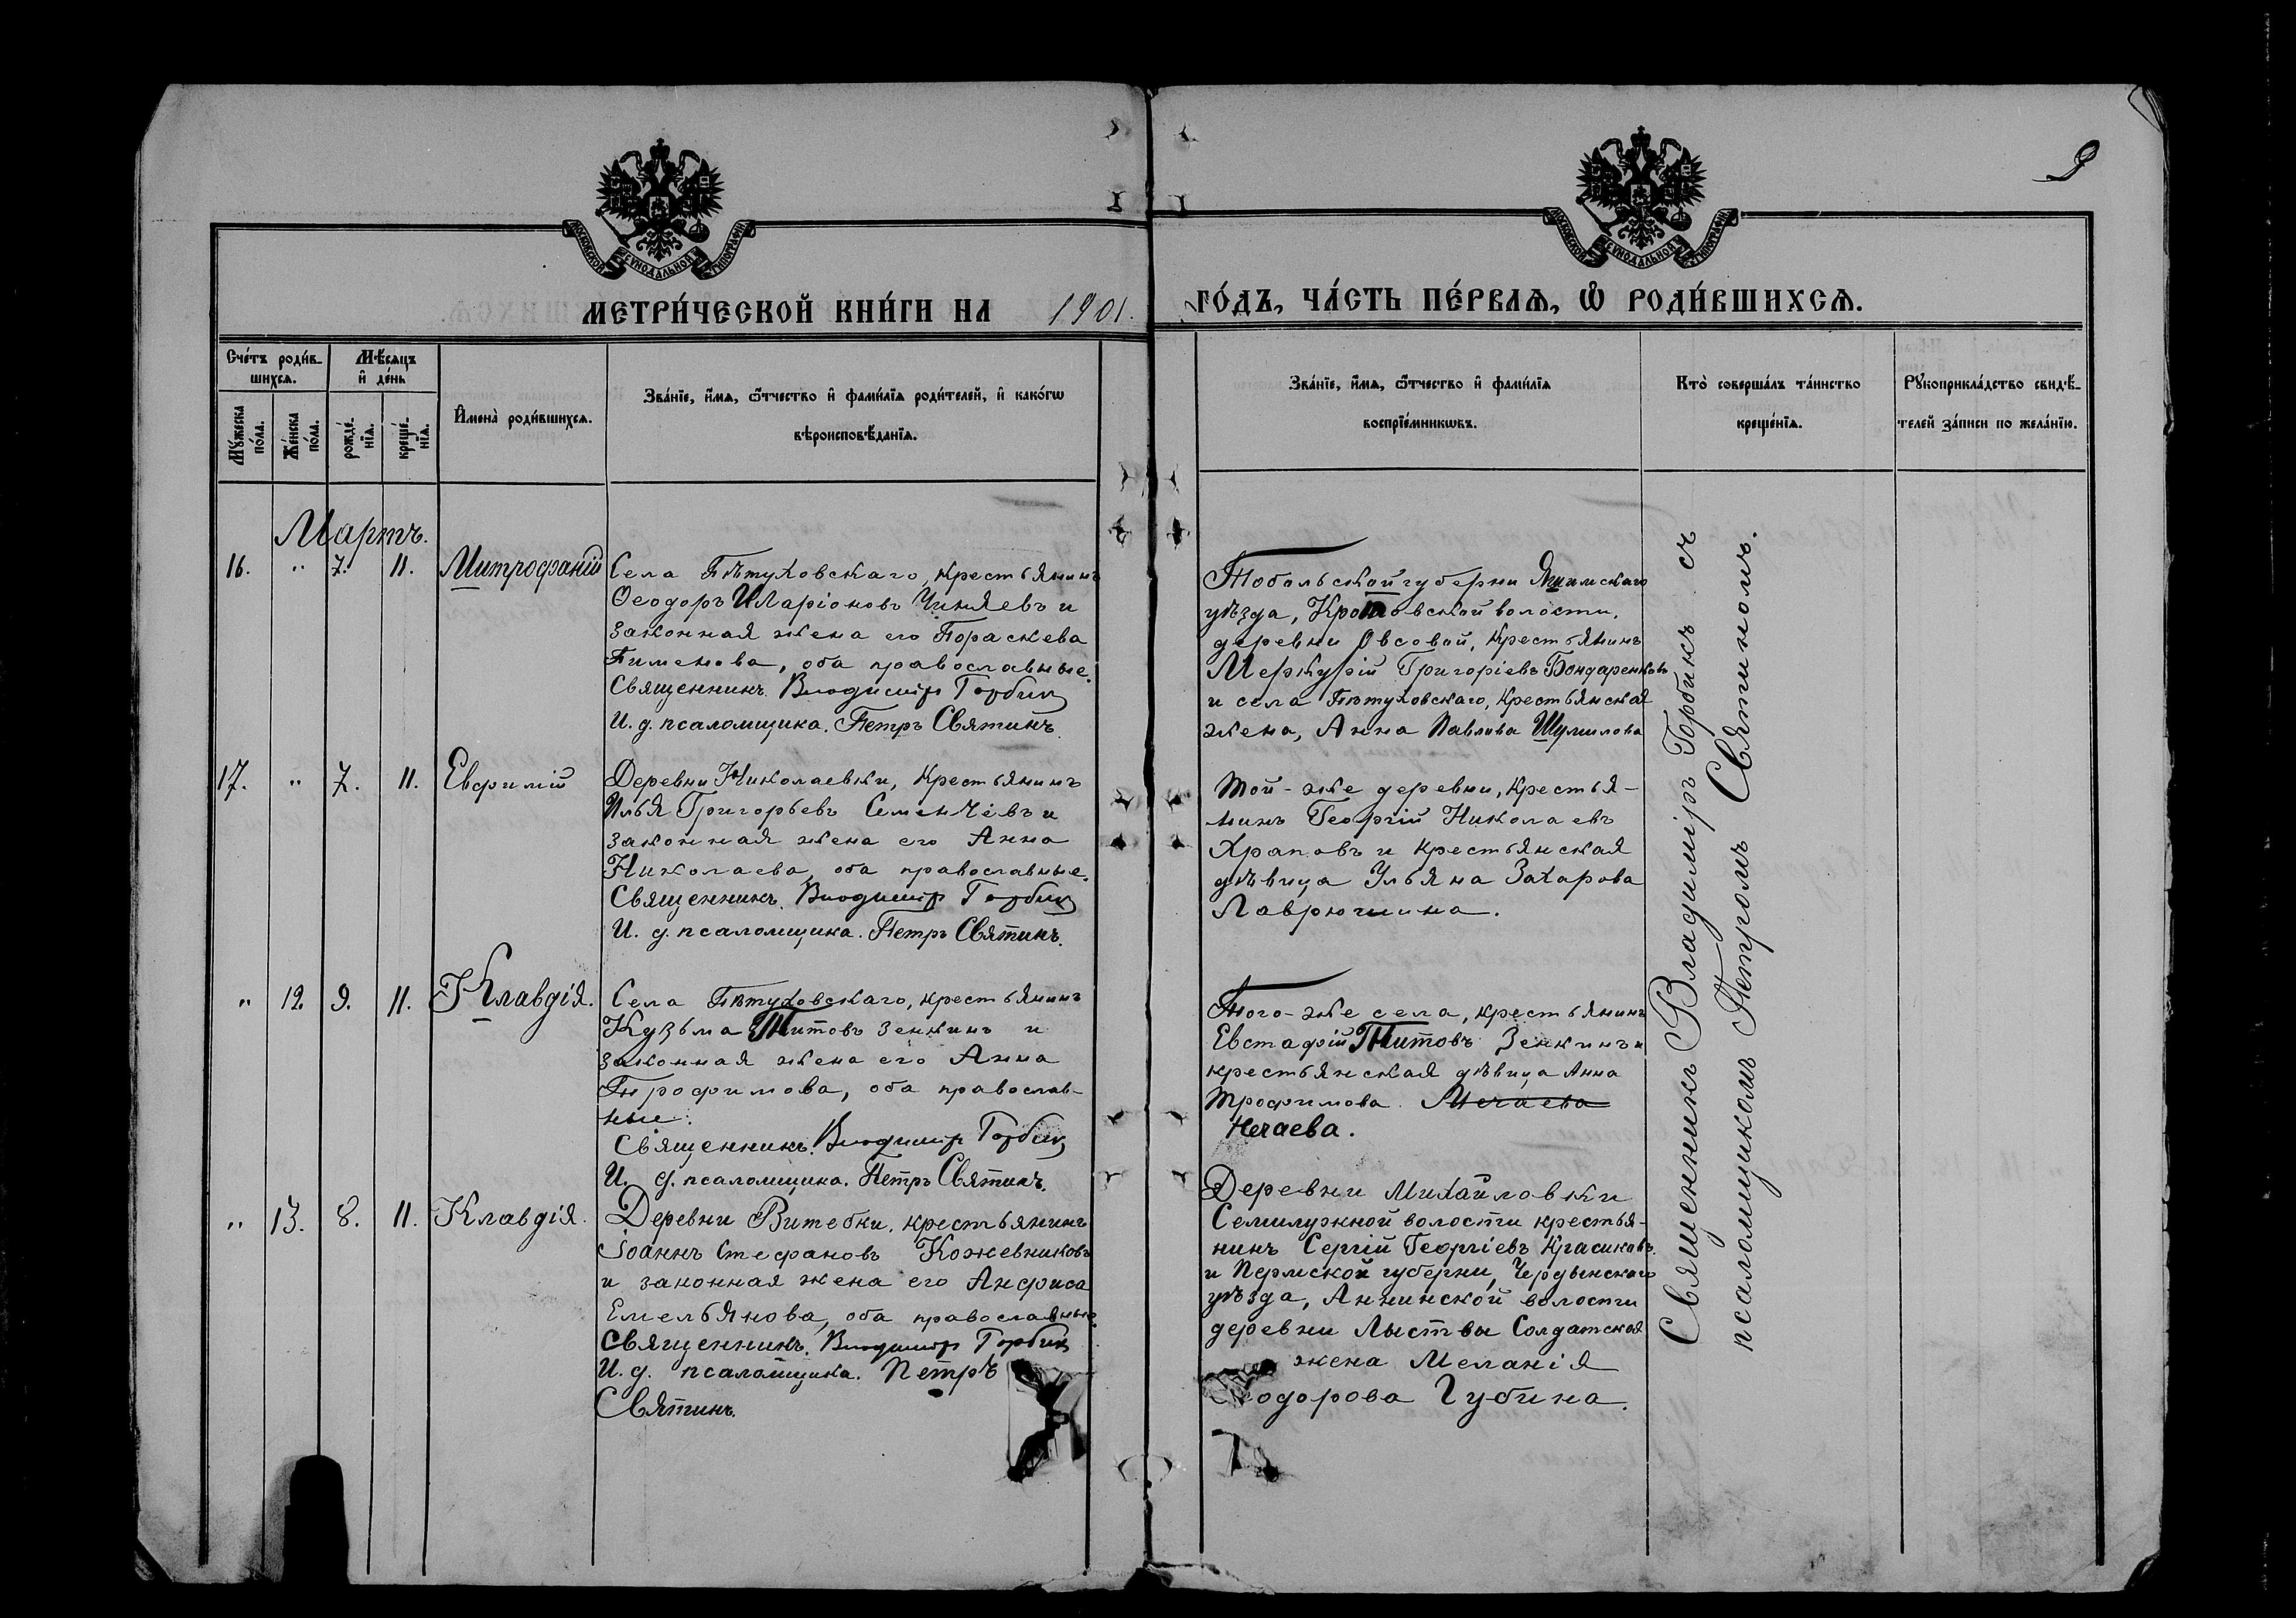 9
МОСКОВСКОЙ СѴНОДАЛЬНОЙ ТИПОГРАФІИ
МОСКОВСКОЙ СѴНОДАЛЬНОЙ ТИПОГРАФІИ
МЕТРИ́ЧЕСКОЙ КНИ́ГИ НА 1901. ГО́ДЪ, ЧА́СТЬ ПЕ́РВАѦ, Ѿ РОДИ́ВШИХСѦ.
Сче́тъ роди́в-
шихсѧ.
Мѣ́сѧцъ
и҆ де́нь
Мꙋ́жеска
по́ла.
Же́нска
по́ла.
рожде́-
нїѧ.
креще́-
нїѧ.
И҆мена̀ роди́вшихсѧ.
Зва́нїе, и҆́мѧ, ѻ҆́тчество и҆ фами́лїѧ роди́телей, и҆ како́гѡ
вѣроисповѣ́данїѧ.
Зва́нїе, и҆́мѧ, ѻ҆́тчество и҆ фами́лїѧ
воспрїе́мникѡвъ.
Кто̀ соверша́лъ та́инство
креще́нїѧ.
Рꙋкоприкла́дство свидѣ́-
телей за́писи по жела́нїю.
Мартъ.
16. " 7. 11. Митрофаній
Села Пѣтуховскаго, крестьянинъ
Ѳеодоръ Иларіоновъ Чиняевъ и
законная жена его Пораскева
Пименова, оба православные.
Священникъ Владиміръ Горбик
И. д. псаломщика. Петръ Святинъ.
Тобольской губерни Яшимскаго
уѣзда, Кротовской волости,
деревни Овсовой, крестьянинъ
Меркурій Григоріевъ Бондаренковъ
и села Пѣтуховскаго, крестьянская
жена, Анна Павлова Шумилова
17. " 7. 11. Евфимій
Деревни Николаевки, крестьянинъ
Илья Григорьевъ Семенчевъ и
законная жена его Анна
Николаева, оба православные.
Священникъ. Владиміръ Горбик
И. д. псаломщика. Петръ Святинъ.
Той-же деревни, крестья-
нинъ Георгій Николаевъ
Храповъ и крестьянская
дѣвица Ульяна Захарова
Лаврюшина.
" 12. 9. 11. Клавдія.
Села Пѣтуховскаго, крестьянинъ
Кузьма Титовъ Зенкинъ и
законная жена его Анна
Трофимова, оба православ-
ные.
Священникъ. Владиміръ Горбик
И. д. псаломщика. Петръ Святинъ.
Того-же села, крестьянинъ
Евстафій Титовъ Зенкинъ и
крестьянская дѣвица Анна
Трофимова. Мечаева
Нечаева.
" 13. 8. 11. Клавдія.
Деревни Витебки, крестьянинъ
Іоаннъ Стефановъ Кожевниковъ
и законная жена его Анфиса
Емельянова, оба православные.
Священникъ. Владиміръ Горбик
И. д. псаломщика. Петръ
Святинъ.
Деревни Михайловки
Семилужной волости крестья-
нинъ Сергій Георгіевъ Красиковъ.
и Пермской губерни, Чердынскаго
уѣзда, Аннинской волости
деревни Лыствы Солдатская
жена Меланія
Ѳеодорова Губина.
Священникъ Владиміръ Горбикъ съ
псаломщикомъ Петромъ Святиномъ.